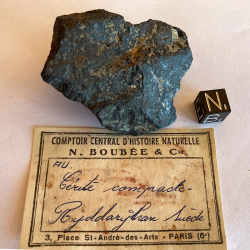 N
B
COMPTOIR CENTRAL D'HISTOIRE NATURELLE
N. BOUBÉE & Cie
AU
Cérite compacte
Ryddarythan Suède
3, Place St-André-des-Arts - PARIS (6e)